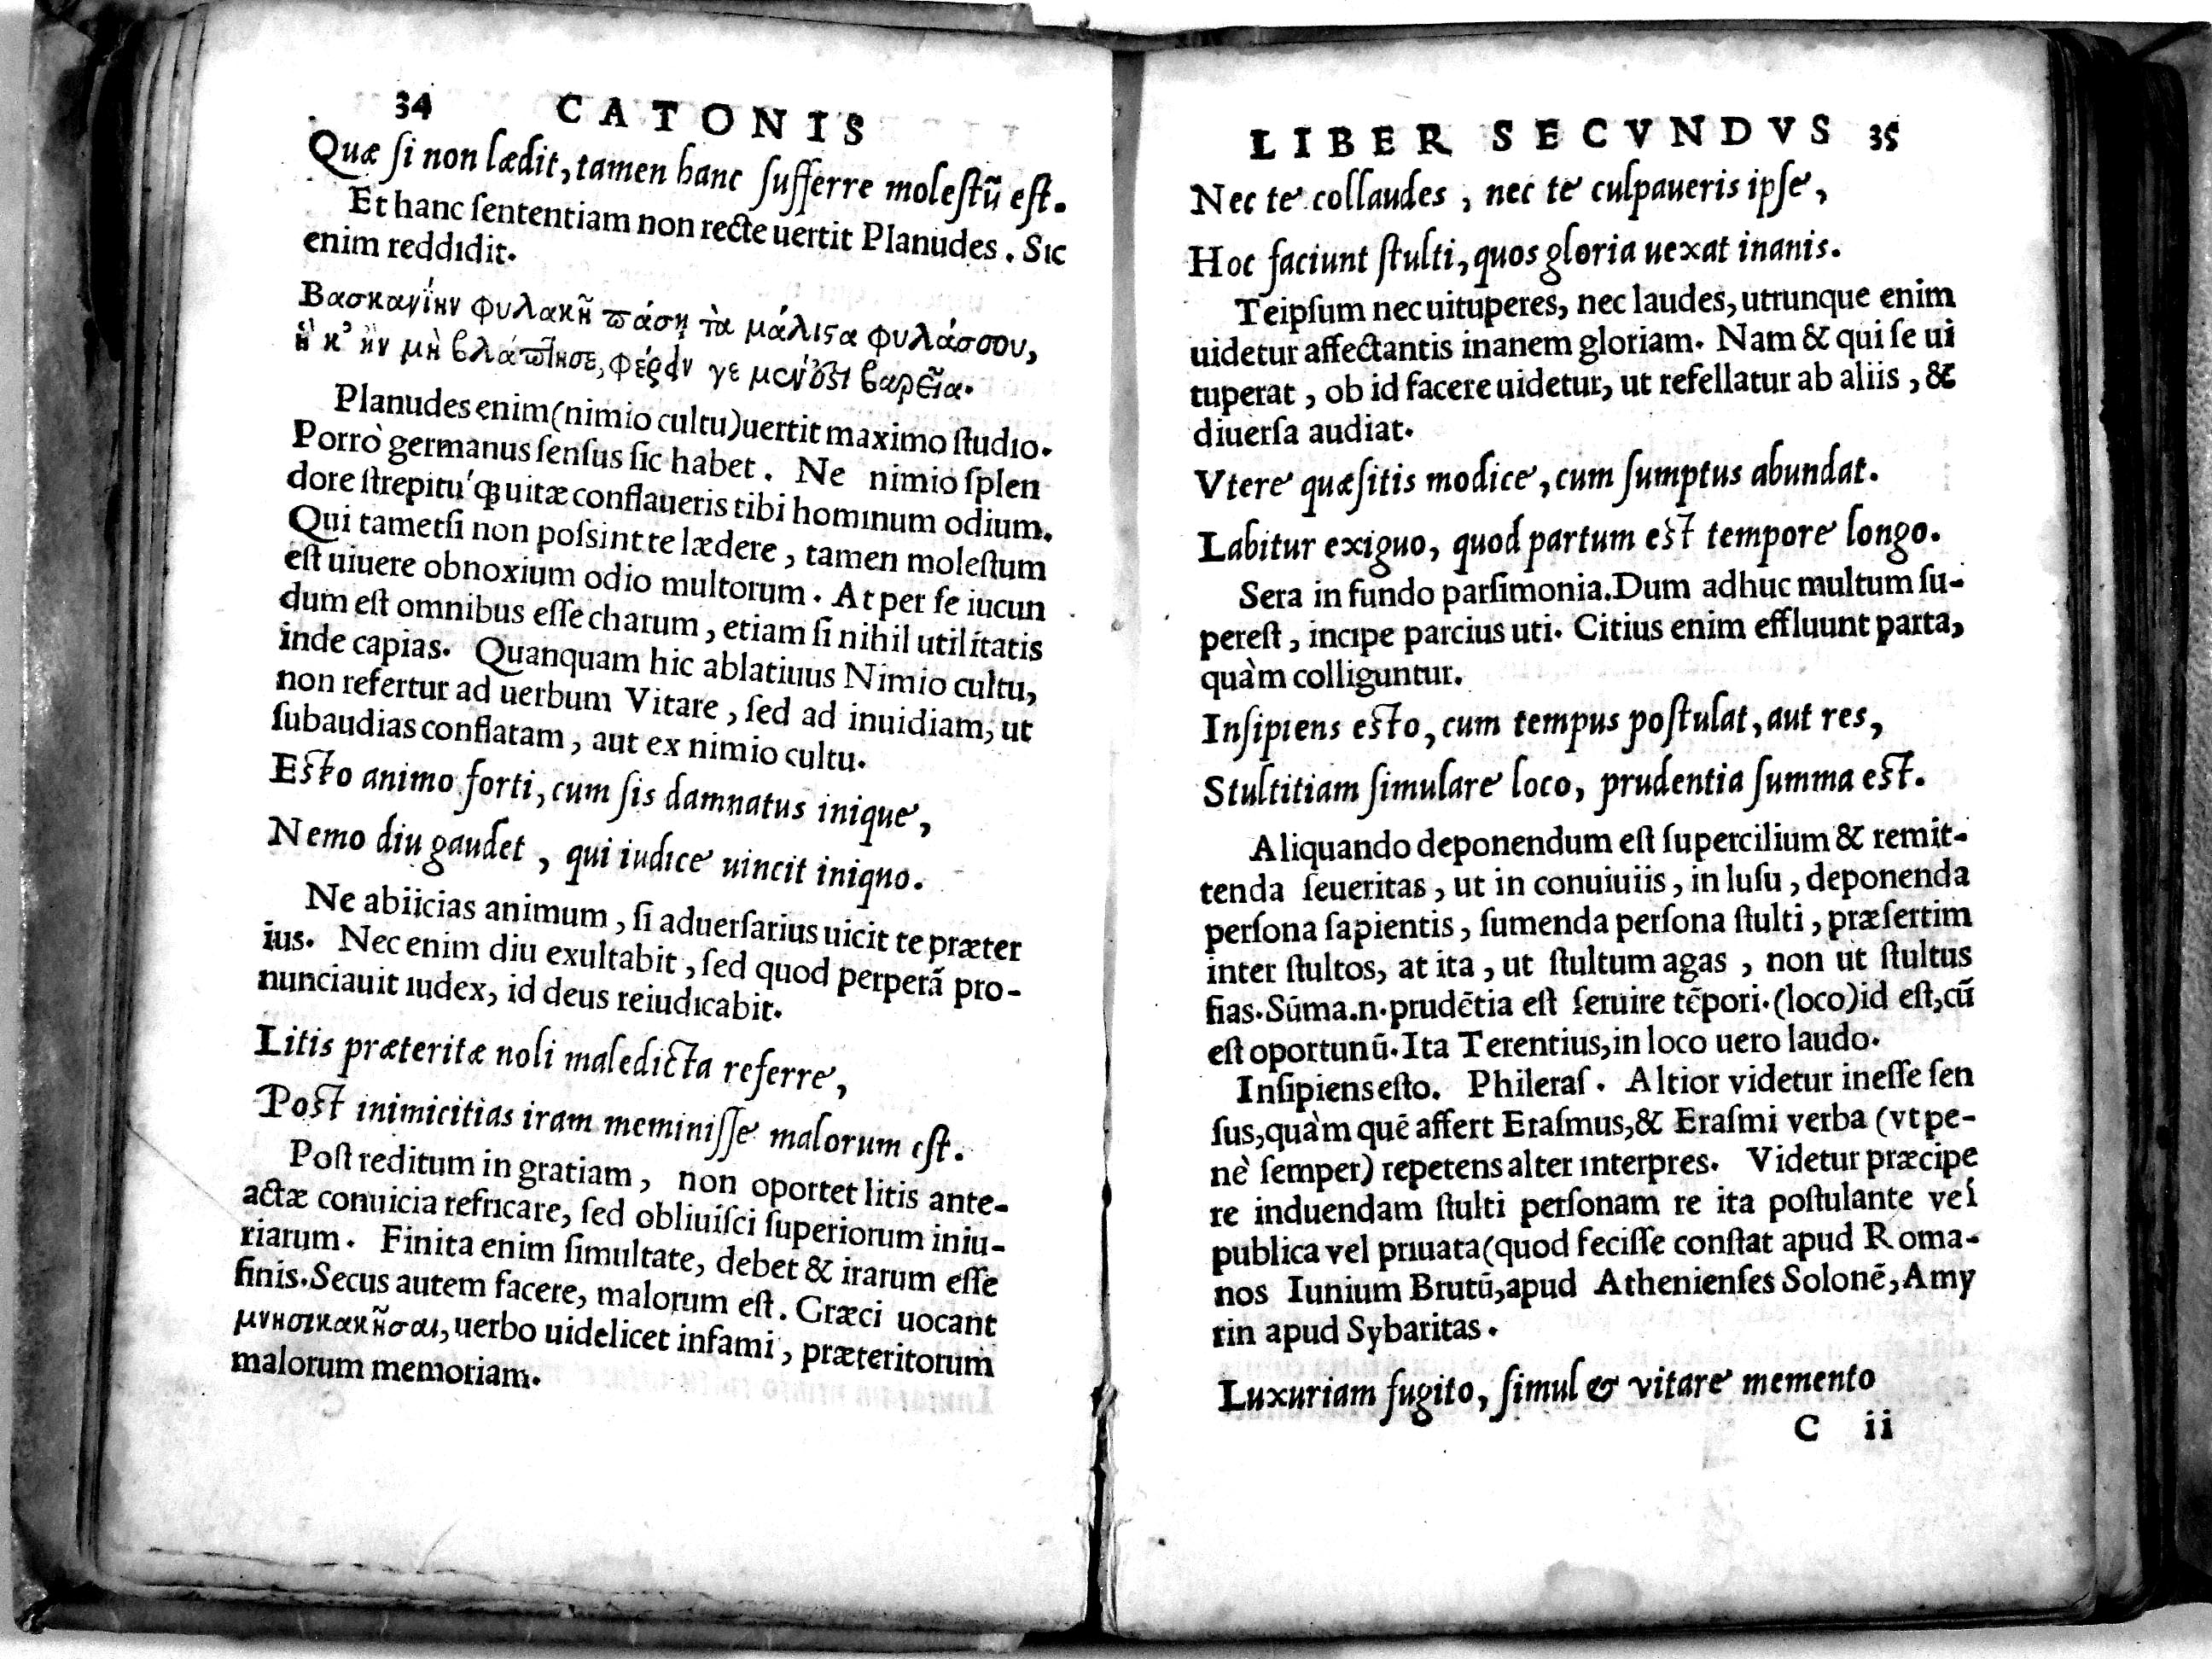 34 CATONIS
Quæ ſi non lædit, tamen hanc ſufferre moleſtũ eſt.
Et hanc ſententiam non recte uertit Planudes. Sic
enim reddidit.
Βασκανίην φυλακῇ πάσῃ τὰ μάλιϛα φυλάσσου,
Planudes enim (nimio cultu) uertit maximo ſtudio.
Porrò germanus ſenſus ſic habet. Ne nimio ſplen
dore ſtrepitu'q; uitæ conflaueris tibi hominum odium.
Qui tametſi non poſsint te lædere, tamen moleſtum
eſt uiuere obnoxium odio multorum. At per ſe iucun
dum eſt omnibus eſſe charum, etiam ſi nihil utilitatis
inde capias. Quanquam hic ablatiuus Nimio cultu,
non refertur ad uerbum Vitare, ſed ad inuidiam, ut
ſubaudias conflatam, aut ex nimio cultu.
Eſto animo forti, cum ſis damnatus inique,
Nemo diu gaudet, qui iudice uincit iniquo.
Ne abiicias animum, ſi aduerſarius uicit te præter
ius. Nec enim diu exultabit, ſed quod perperã pro-
nunciauit iudex, id deus reiudicabit.
Litis præteritæ noli maledicta referre,
Poſt inimicitias iram meminiſſe malorum eſt.
Poſt reditum in gratiam, non oportet litis ante-
actæ conuicia refricare, ſed obliuiſci ſuperiorum iniu-
riarum. Finita enim ſimultate, debet & irarum eſſe
finis. Secus autem facere, malorum eſt. Græci uocant
μνησικακῆσαι, uerbo uidelicet infami, præteritorum
malorum memoriam.
LIBER SECVNDVS 35
Nec te collaudes, nec te culpaueris ipſe,
Hoc faciunt ſtulti, quos gloria uexat inanis.
Teipſum nec uituperes, nec laudes, utrunque enim
uidetur affectantis inanem gloriam. Nam & qui ſe ui
tuperat, ob id facere uidetur, ut refellatur ab aliis, &
diuerſa audiat.
Vtere quæſitis modice, cum ſumptus abundat.
Labitur exiguo, quod partum eſt tempore longo.
Sera in fundo parſimonia. Dum adhuc multum ſu-
pereſt, incipe parcius uti. Citius enim effluunt parta,
quàm colliguntur.
Inſipiens eſto, cum tempus poſtulat, aut res,
Stultitiam ſimulare loco, prudentia ſumma eſt.
Aliquando deponendum eſt ſupercilium & remit-
tenda ſeueritas, ut in conuiuiis, in luſu, deponenda
perſona ſapientis, ſumenda perſona ſtulti, præſertim
inter ſtultos, at ita, ut ſtultum agas, non ut ſtultus
fias. Sũma.n.prudẽtia eſt ſeruire tẽpori. (loco) id eſt, cũ
eſt oportunũ. Ita Terentius, in loco uero laudo.
Inſipiens eſto. Phileraſ. Altior videtur ineſſe ſen
ſus, quàm quẽ affert Eraſmus, & Eraſmi verba (vt pe-
nè ſemper) repetens alter interpres. Videtur præcipe
re induendam ſtulti perſonam re ita poſtulante vel
publica vel priuata (quod feciſſe conſtat apud Roma-
nos Iunium Brutũ, apud Athenienſes Solonẽ, Amy
rin apud Sybaritas.
Luxuriam fugito, ſimul & vitare memento
C ii